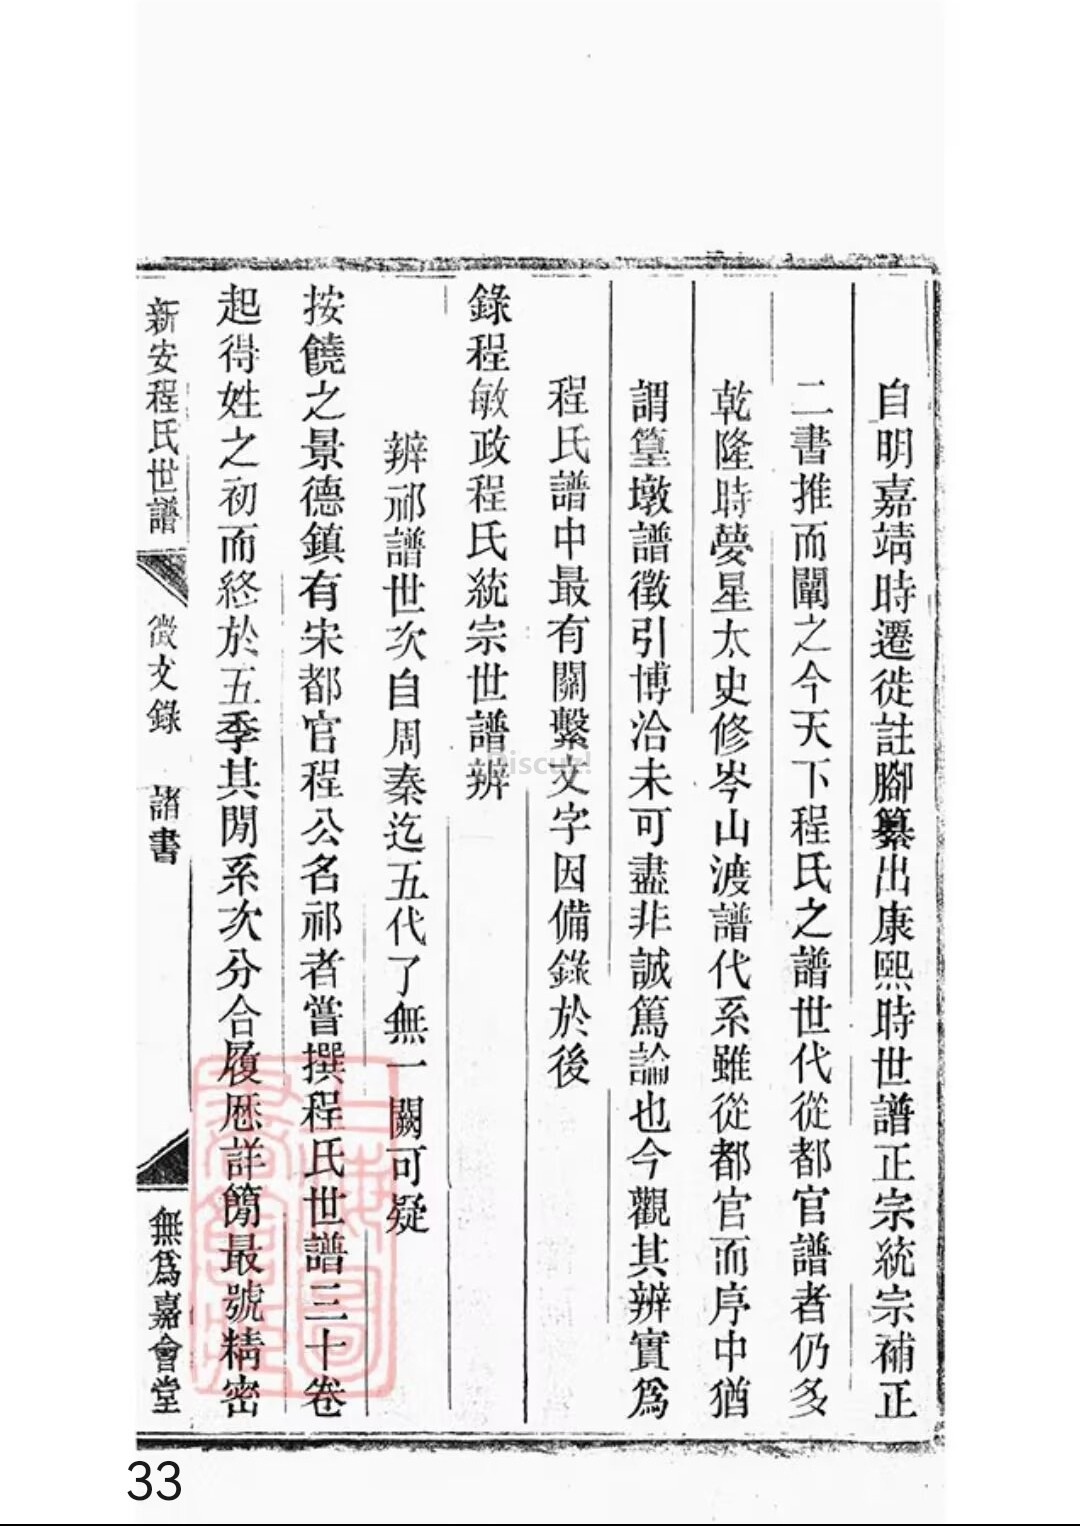 自明嘉靖時遷徙註腳纂出康熙時世譜正宗統宗補正
二書推而闡之今天下程氏之譜世代從都官譜者仍多
乾隆時夢星太史修岑山渡譜代系雖從都官而序中猶
謂篁墩譜徵引博洽未可盡非誠篤論也今觀其辨實為
程氏譜中最有關繫文字因備錄於後
錄程敏政程氏統宗世譜辨
辨祁譜世次自周秦迄五代了無一闕可疑
按饒之景德鎮有宋都官程公名祁者嘗撰程氏世譜三十卷
起得姓之初而終於五季其閒系次分合履厯詳簡最號精密
新安程氏世譜
徵文錄 諸書
無爲嘉會堂
上海圖書館藏
Discuz!
33